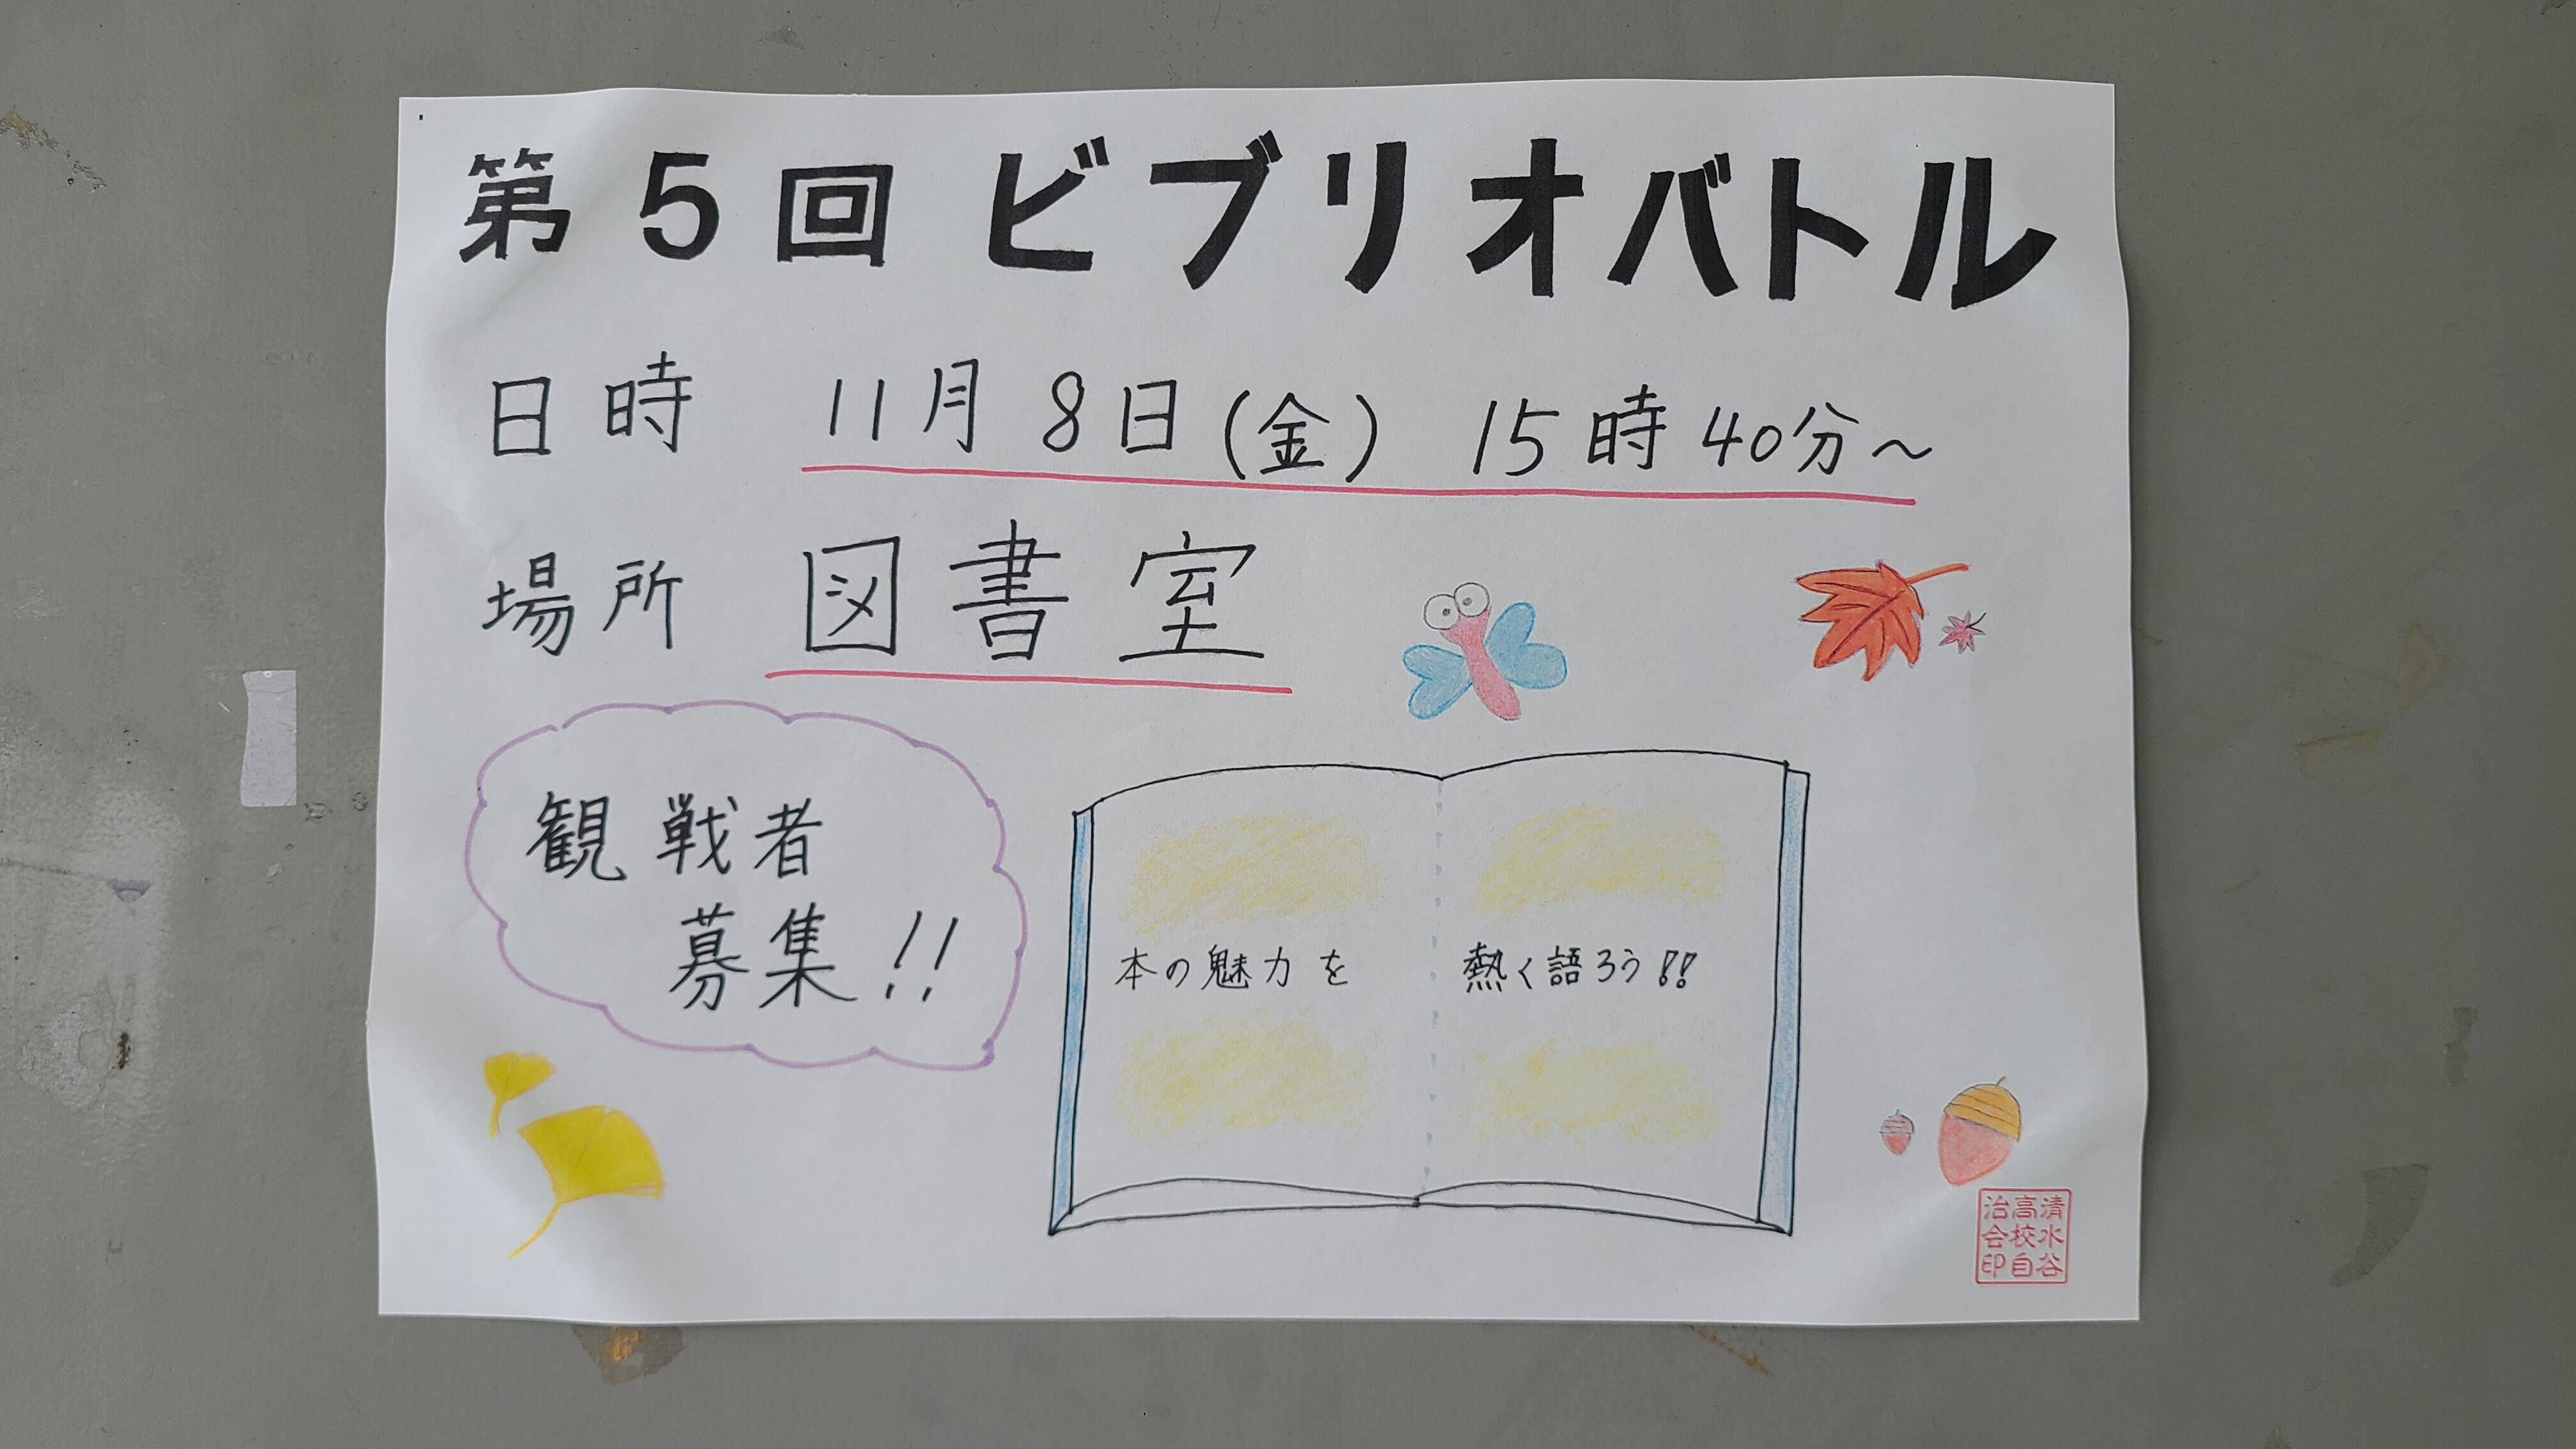 第5回 ビブリオバトル
日時 11月8日(金) 15時40分～
場所 図書室
観戦者
募集!!
本の魅力を 熱く語ろう!!
清水谷
高校自
治会印